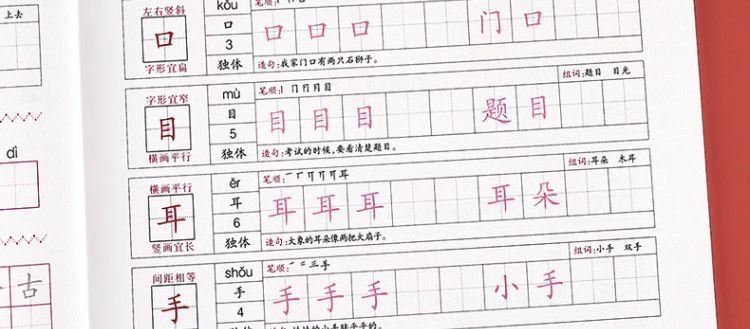 上去
dì
古
左右竖斜
口
字形宜扁
kǒu
口
3
独体
笔顺:
口 口 口 门 口
造句:我家门口有两只石狮子。
字形宜窄
目
横画平行
mù
目
5
独体
笔顺:丨 冂 冃 月 目
组词:题目 目光
目 目 目 题 目
造句:考试的时候,要看清楚题目。
横画平行
耳
竖画宜长
ěr
耳
6
独体
笔顺:一 丆 丌 耳
组词:耳朵 木耳
耳 耳 耳 耳 朵
造句:大象的耳朵像两把大扇子。
间距相等
手
shǒu
手
4
独体
笔顺:一 二 三 手
组词:小手 双手
手 手 手 小 手